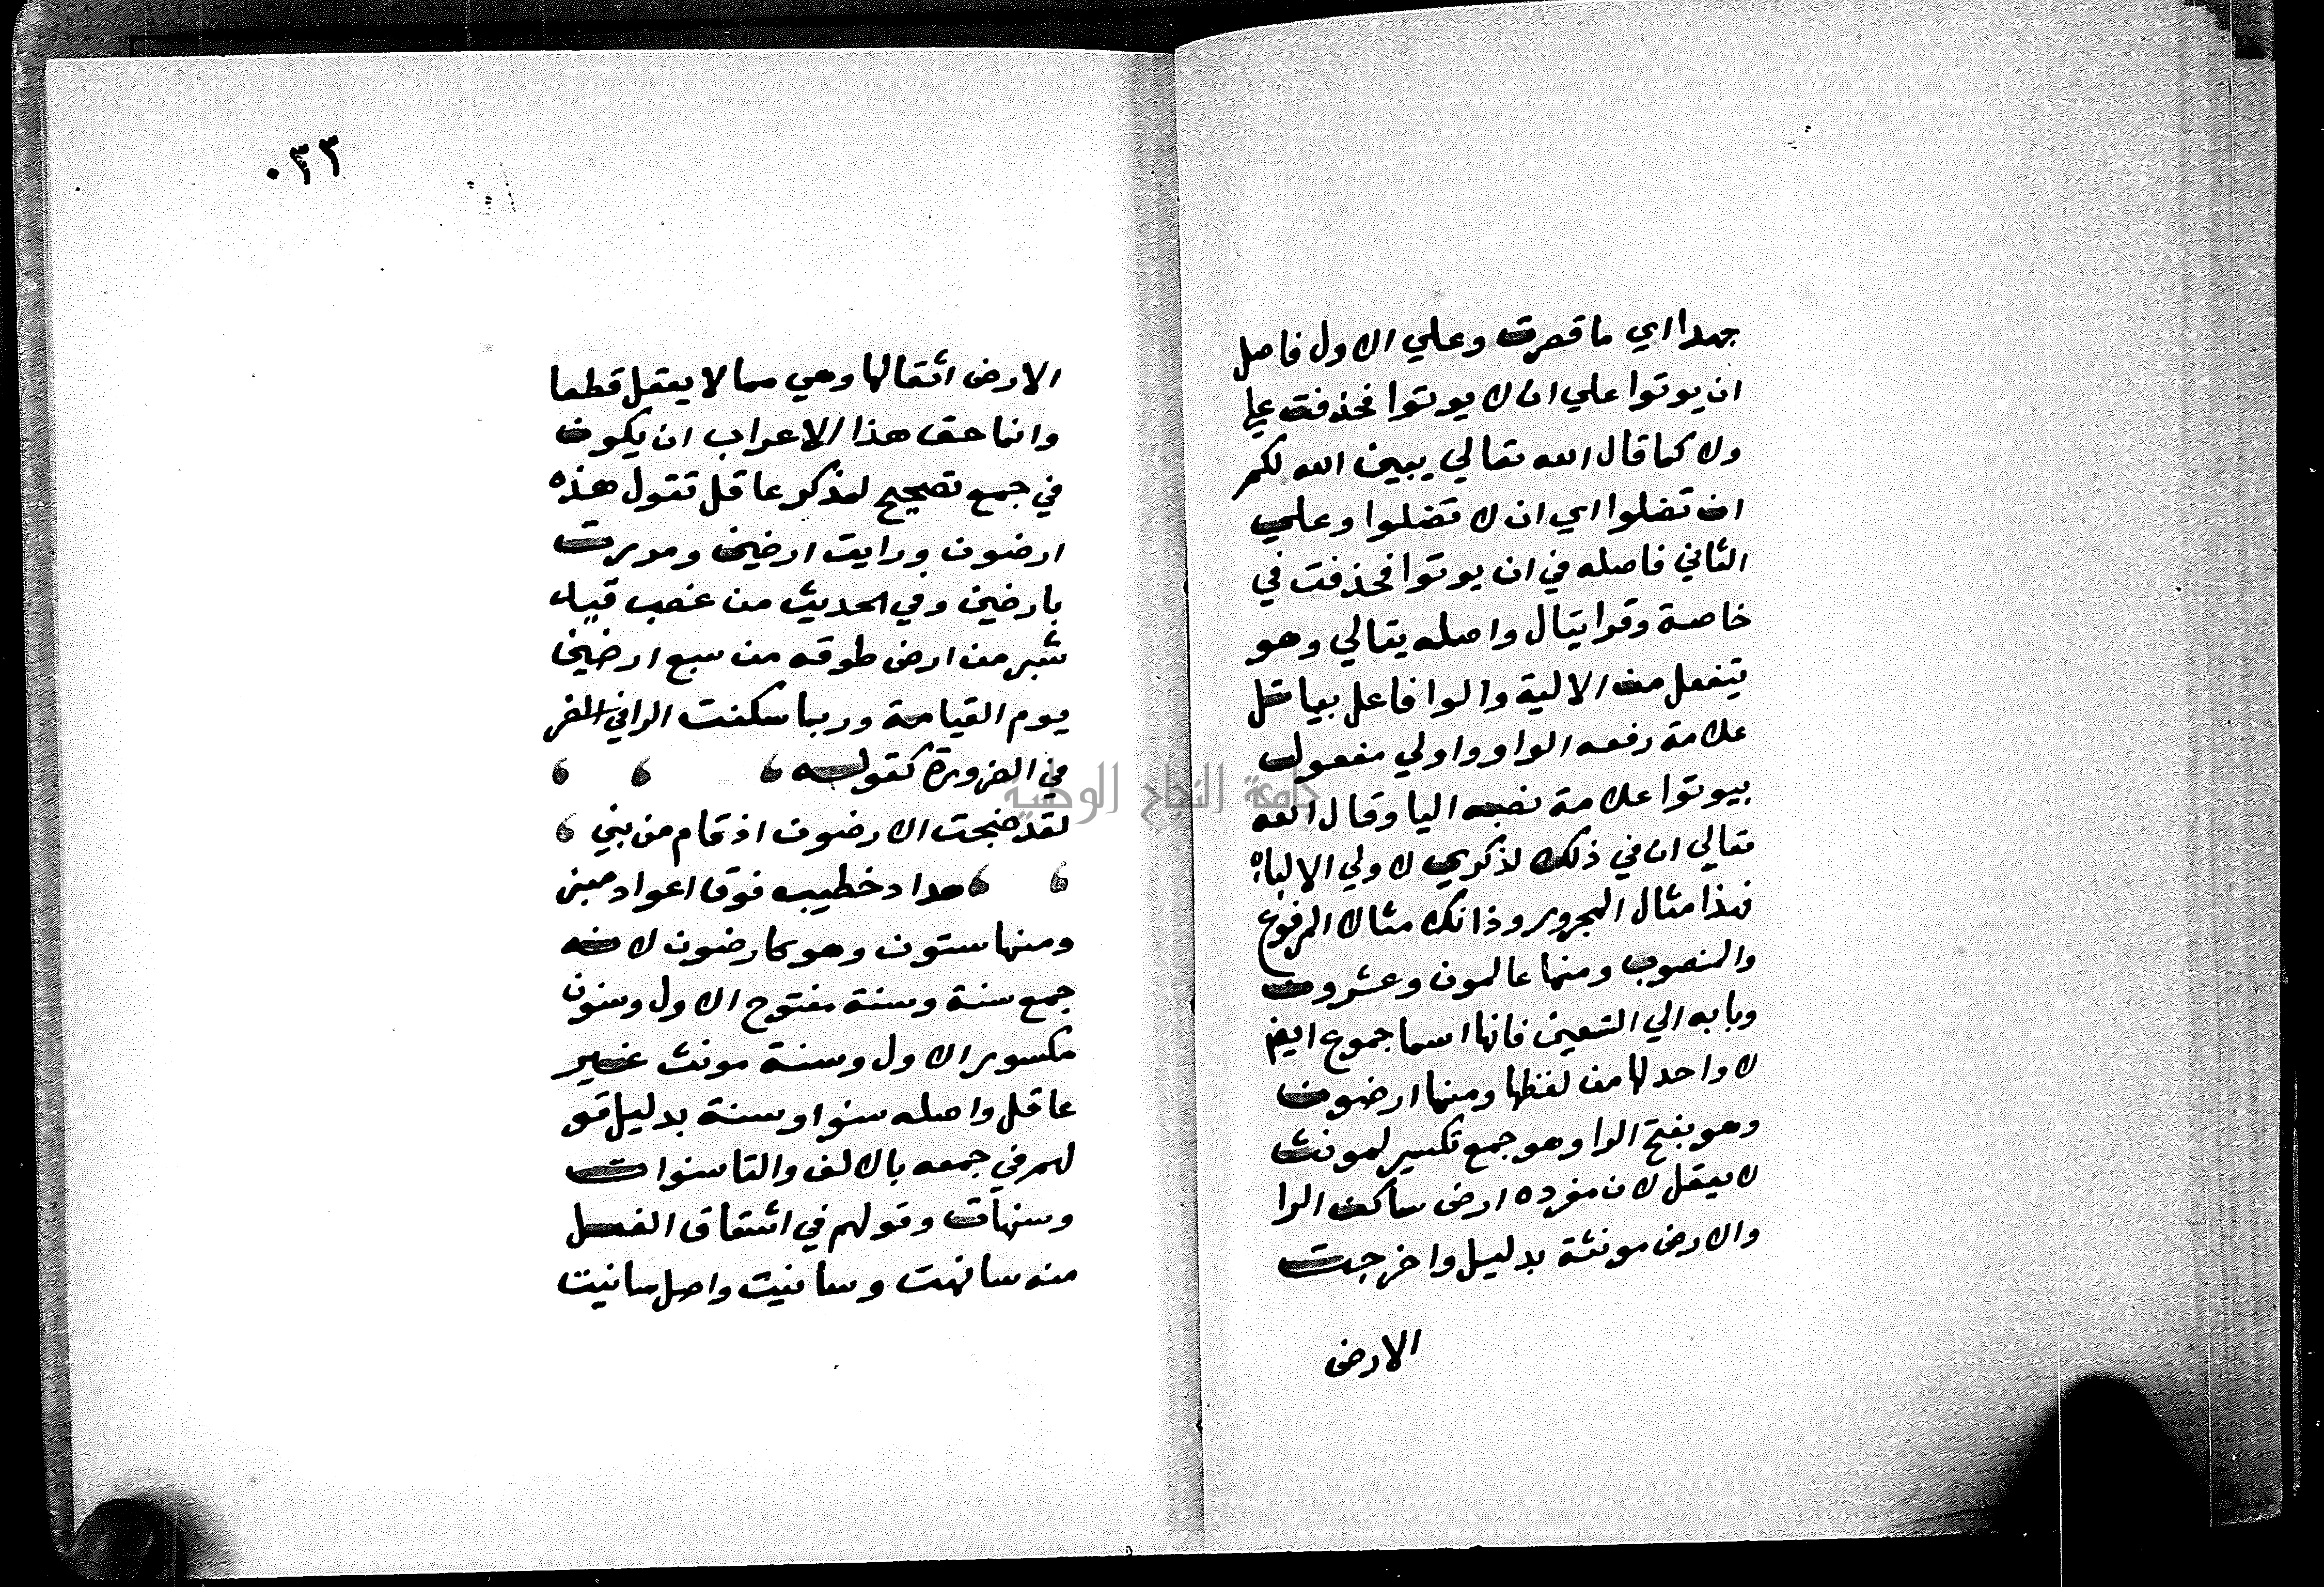 جهدا اي ما قصرت وعلي الاول فاصل
ان يوتوا علي ان لا يوتوا فحذفت علي
ولا كما قال الله تعالي يبين الله لكم
ان تضلوا اي ان لا تضلوا وعلي
الثاني فاصله في ان يوتوا فحذفت في
خاصة وقرا يتال واصله يتالي وهو
يتفعل من الالية والوا فاعل بياتل
علامة رفعه الواو واولي مفعول
بيوتوا علامة نصبه اليا وقال الله
تعالي ان في ذلك لذكري لاولي الالباب
فهذا مثال المجرور وذانك مثالا المرفوع
والمنصوب ومنها عالمون وعشرون
وبابه الي التسعين فانها اسما جموع ايض
لا واحد لها من لفظها ومنها ارضون
وهو بفتح الرا وهو جمع تكسير لمونث
لا يعقل لان مفرده ارض ساكن الرا
والارض مونثة بدليل واخرجت
الارض
٠٣٣
الارض اثقالها وهي مما لا يعقل قطعا
وانما حق هذا الاعراب ان يكون
في جمع تصحيح لمذكر عاقل تقول هذه
ارضون ورايت ارضين ومررت
بارضين وفي الحديث من غصب قيد
شبر من ارض طوقه من سبع ارضين
يوم القيامة وربما سكنت الرا في
في الضرورة كقوله
لقد ضجت الارضون اذ قام من بني
هداد خطيب فوق اعواد منبر
ومنها ستون وهو كارضون لانه
جمع سنة وسنة مفتوح الاول وسنون
مكسور الاول وسنة مونث غير
عاقل واصله سنو او سنة بدليل قو
لهم في جمعه بالالف والتا سنوات
وسنهات وقولهم في اشتقاق الفعل
منه سانهت وسانيت واصل سانيت
جامعة النجاح الوطنية